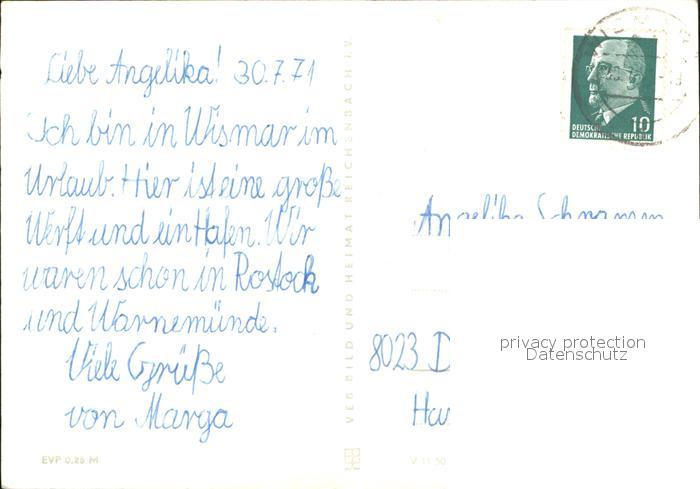 Liebe Angelika! 30.7.71
Ich bin in Wismar im
Urlaub. Hier ist eine große
Werft und ein Hafen. Wir
waren schon in Rostock
und Warnemünde.
Viele Grüße
von Marga
EVP 0,25 M
VEB BILD UND HEIMAT REICHENBACH I. V.
DEUTSCHE
DEMOKRATISCHE REPUBLIK
10
Angelika
8023 D
privacy protection
Datenschutz
V 11 50